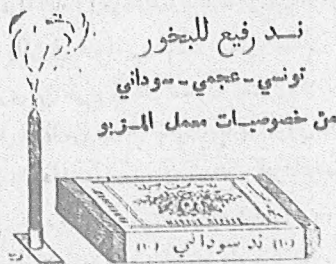 نــد رفيع للبخور
تونسي - عجمي - سوداني
من خصوصيات معمل المـزيو
(١٠) ند سوداني (١٠)